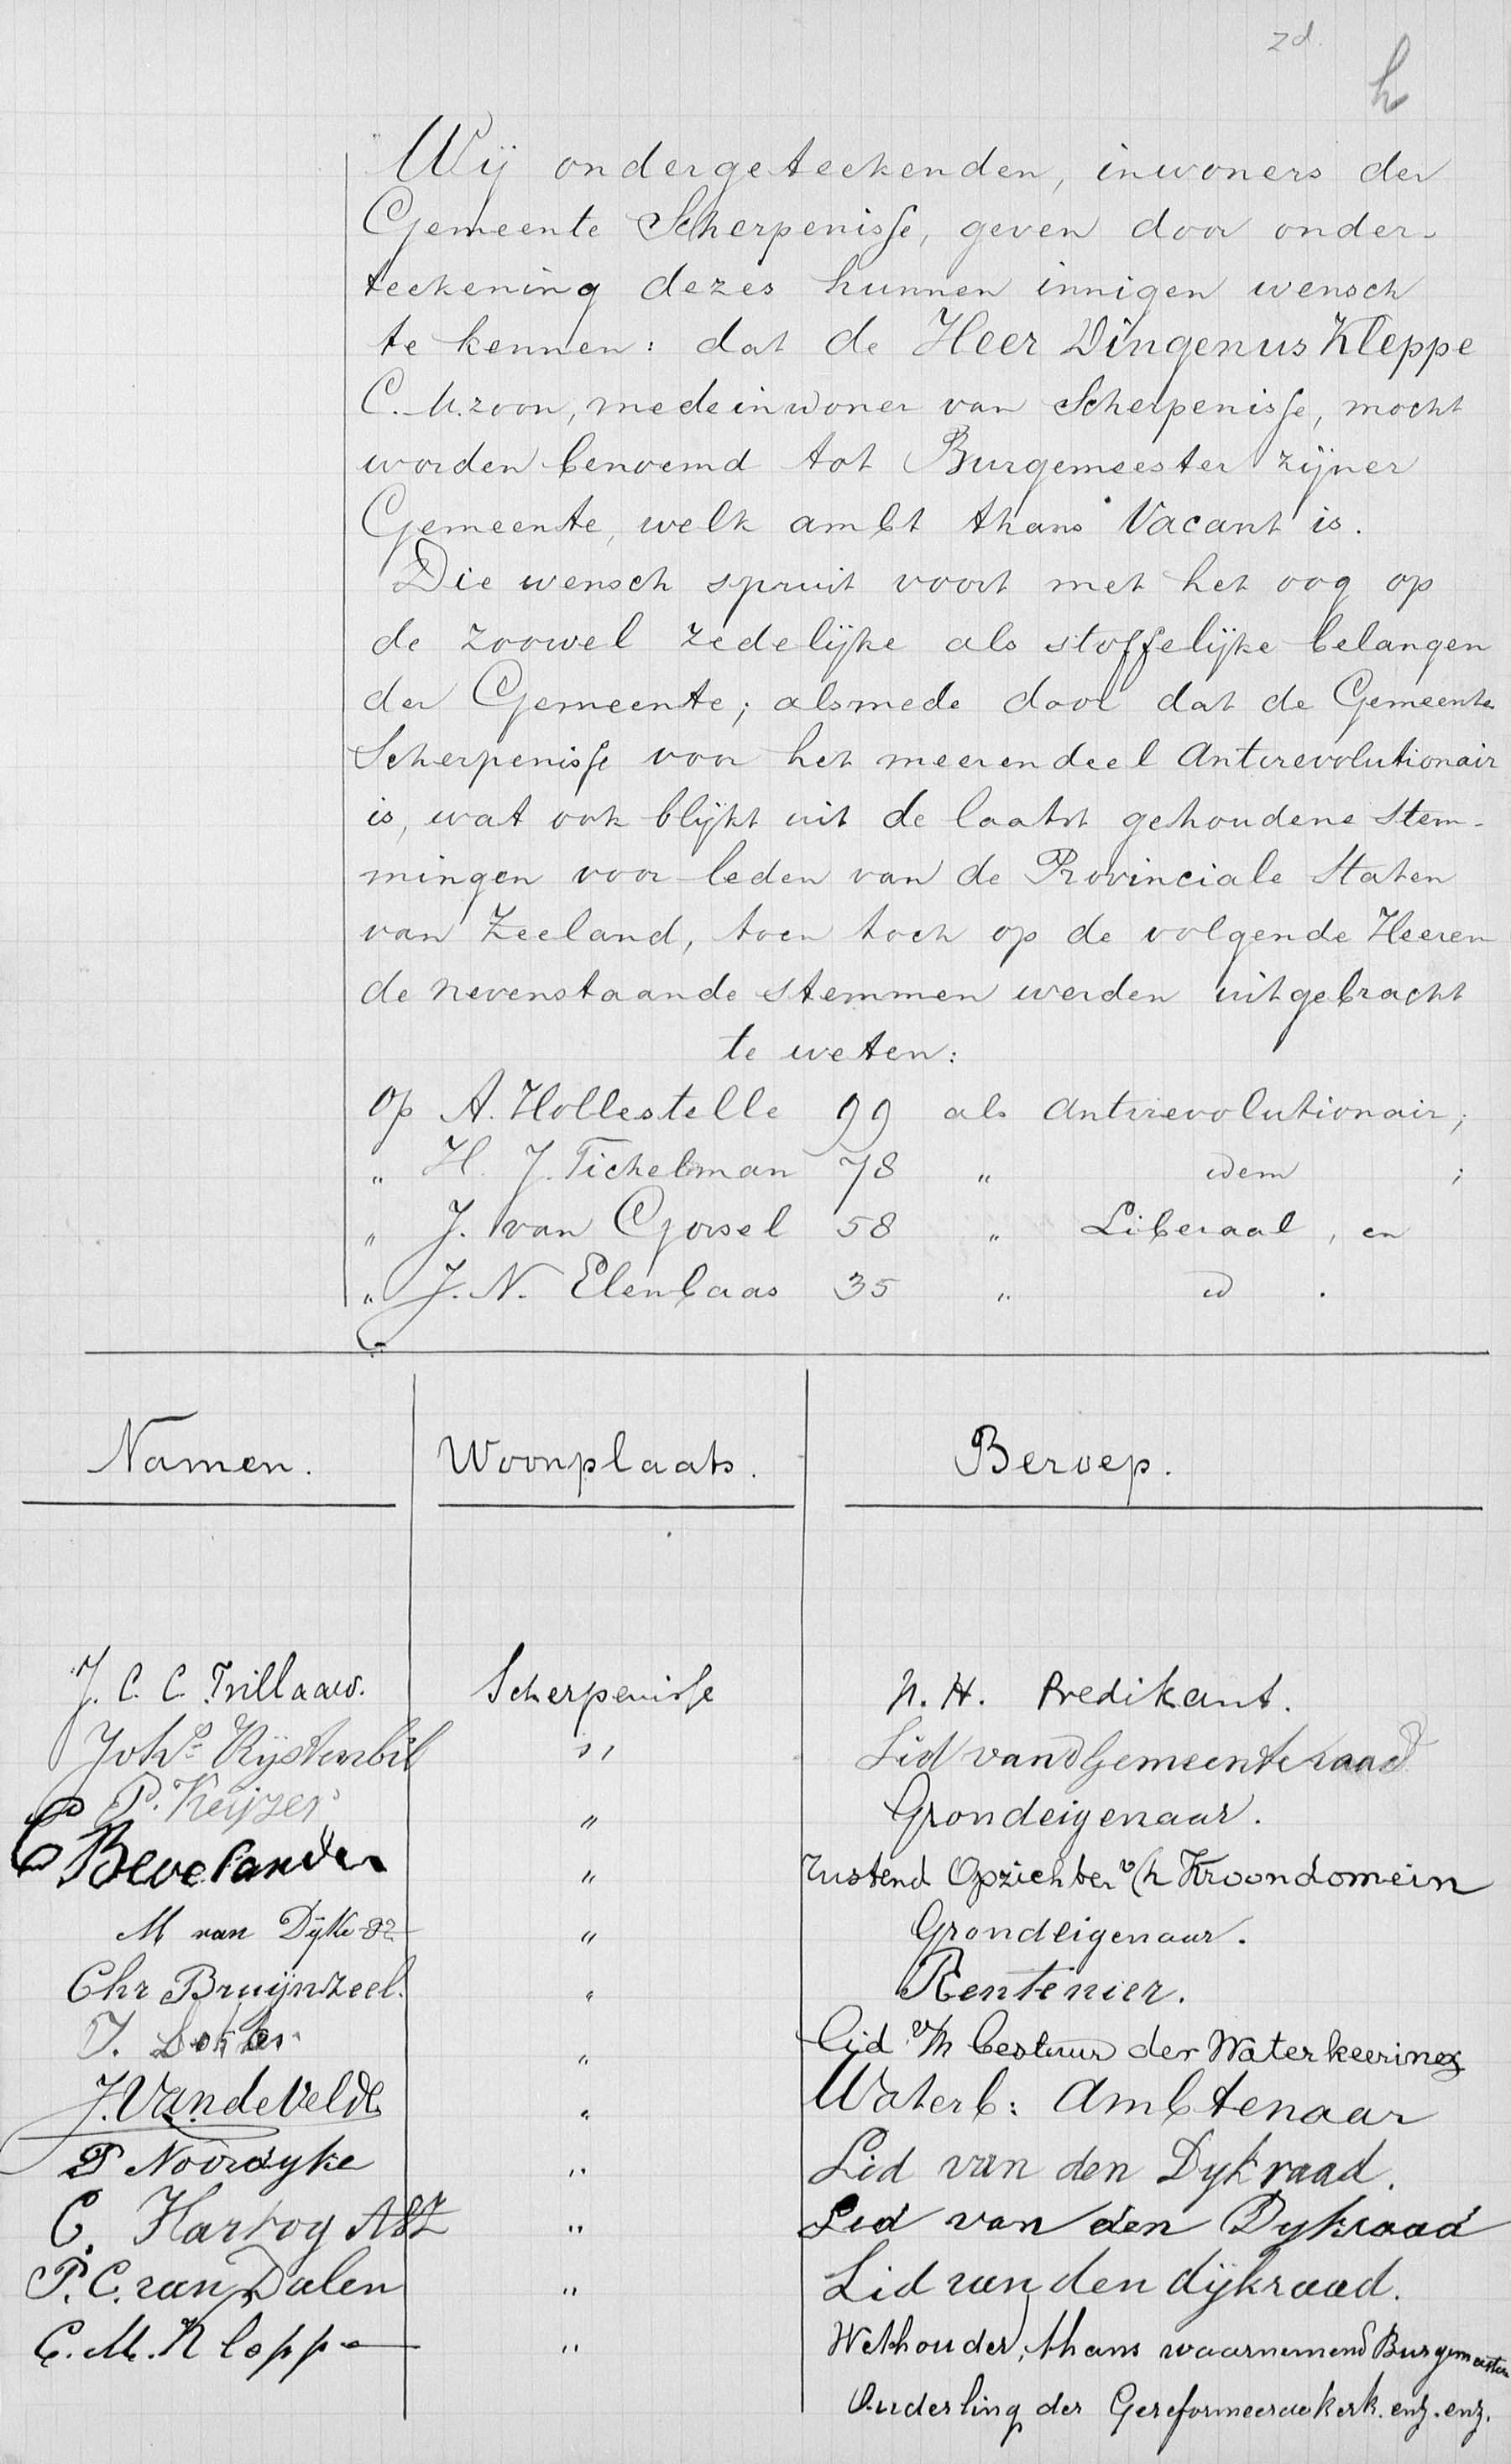 zd.
h
Wij ondergeteekenden, inwoners der
Gemeente Scherpenisse, geven door onder-
teekening dezes hunnen innigen wensch
te kennen: dat de Heer Dingenus Kleppe
C. M. zoon, medeinwoner van Scherpenisse, mocht
worden benoemd tot Burgemeester zijner
Gemeente, welk ambt thans Vacant is.
Die wensch spruit voort met het oog op
de zoowel zedelijke als stoffelijke belangen
der Gemeente; alsmede door dat de Gemeente
Scherpenisse voor het meerendeel Antirevolutionair
is, wat ook blijkt uit de laatst gehoudene stem-
mingen voor leden van de Provinciale Staten
van Zeeland, toen toch op de volgende Heeren
de nevenstaande stemmen werden uitgebracht
te weten:
Op A. Hollestelle 99 als Antirevolutionair;
„ H. J. Tichelman 78 „ idem ;
„ J. van Gorsel 58 „ Liberaal, en
„ J. N. Elenbaas 35 „ id .
Namen. Woonplaats. Beroep.
J. C. C. Trillaard. Scherpenisse N. H. Predikant.
Joh^s Rijstenbil „ Lid van d Gemeenteraad
P. Keijzer „ Grondeigenaar.
C Bevelander „ rustend Opzichter v/h Kroondomein
M van Dijke Dz „ Grondeigenaar.
Chr Bruijnzeel. „ Rentenier.
J. „ Lid v/h bestuur der Waterkeering
J. VandeVelde „ Waterb: Ambtenaar
P Noordyke „ Lid van den Dykraad.
C. Hartog AbZ „ Lid van den Dykraad
P. C. van Dalen „ Lid van den dijkraad.
C. M. Kleppe „ Wethouder, thans waarnemend Burgemeester
Ouderling der Gereformeerde kerk. enz. enz.